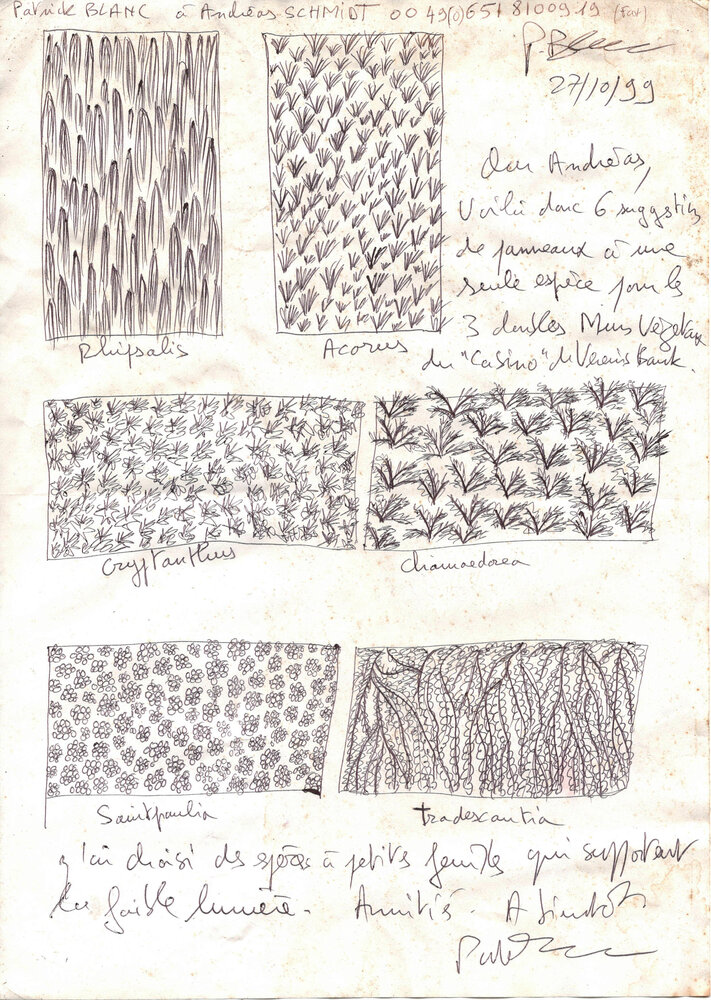 Patrick BLANC à Andréas SCHMIDT 00 49(0)651 8100919 (fax)
P. Blanc
27/10/99
Andréas,
Voilà donc 6 suggestions
de panneaux à une
seule espèce pour les
3 doubles Murs Végétaux
du "Casino" de Vereins Bank.
Rhipsalis
Acorus
Cryptanthus
Chamaedorea
Saintpaulia
tradescantia
J'ai choisi des espèces à petites feuilles qui supportent
la faible lumière. Amitiés. A bientôt